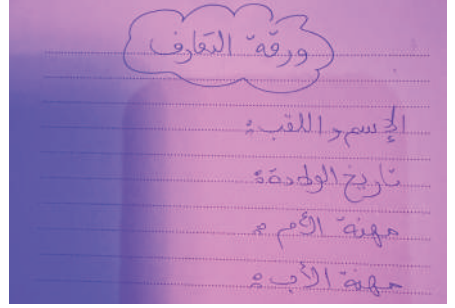 ورقة التعارف
الإسم و اللقب :
تاريخ الولادة :
مهنة الأم :
مهنة الأب :